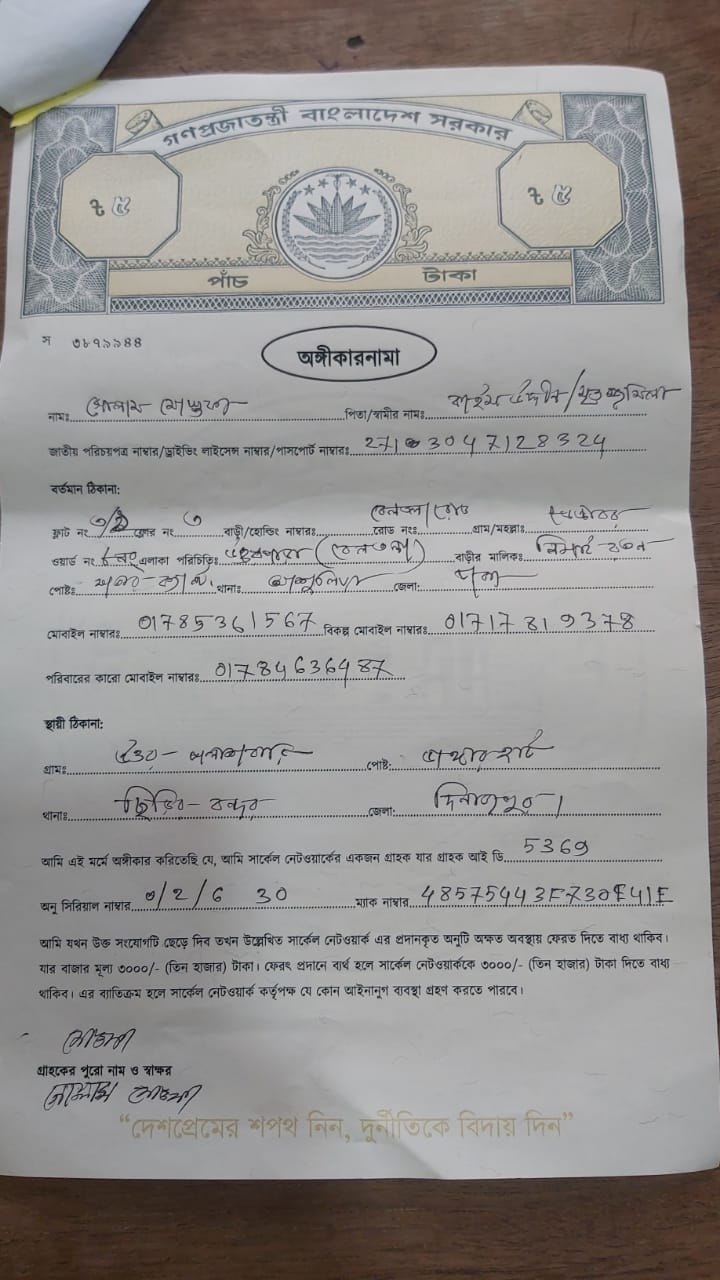 গণপ্রজাতন্ত্রী বাংলাদেশ সরকার
৳ ৫ ৳ ৫
পাঁচ টাকা
স ৩৮৭৯৯৪৪
অঙ্গীকারনামা
নামঃ গোলাম মোস্তফা পিতা/স্বামীর নামঃ
জাতীয় পরিচয়পত্র নাম্বার/ড্রাইভিং লাইসেন্স নাম্বার/পাসপোর্ট নাম্বারঃ
বর্তমান ঠিকানা:
ফ্লাট নং ফ্লোর নং ৩ বাড়ী/হোল্ডিং নাম্বারঃ রোড নংঃ গ্রাম/মহল্লাঃ
ওয়ার্ড নং এলাকা পরিচিতিঃ বাড়ীর মালিকঃ
পোষ্টঃ থানাঃ জেলা:
মোবাইল নাম্বারঃ 01785361567 বিকল্প মোবাইল নাম্বারঃ 01717819378
পরিবারের কারো মোবাইল নাম্বারঃ 01784636487
স্থায়ী ঠিকানা:
গ্রামঃ পোষ্ট:
থানাঃ চিরির-বন্দর জেলা: দিনাজপুর।
আমি এই মর্মে অঙ্গীকার করিতেছি যে, আমি সার্কেল নেটওয়ার্কের একজন গ্রাহক যার গ্রাহক আই ডি 5369
অনু সিরিয়াল নাম্বার 0/2/6 30 ম্যাক নাম্বার 48575443F730E41E
আমি যখন উক্ত সংযোগটি ছেড়ে দিব তখন উল্লেখিত সার্কেল নেটওয়ার্ক এর প্রদানকৃত অনুটি অক্ষত অবস্থায় ফেরত দিতে বাধ্য থাকিব।
যার বাজার মূল্য ৩০০০/- (তিন হাজার) টাকা। ফেরৎ প্রদানে ব্যর্থ হলে সার্কেল নেটওয়ার্ককে ৩০০০/- (তিন হাজার) টাকা দিতে বাধ্য
থাকিব। এর ব্যতিক্রম হলে সার্কেল নেটওয়ার্ক কর্তৃপক্ষ যে কোন আইনানুগ ব্যবস্থা গ্রহণ করতে পারবে।
মোস্তফা
গ্রাহকের পুরো নাম ও স্বাক্ষর
গোলাম মোস্তফা
“দেশপ্রেমের শপথ নিন, দুর্নীতিকে বিদায় দিন”